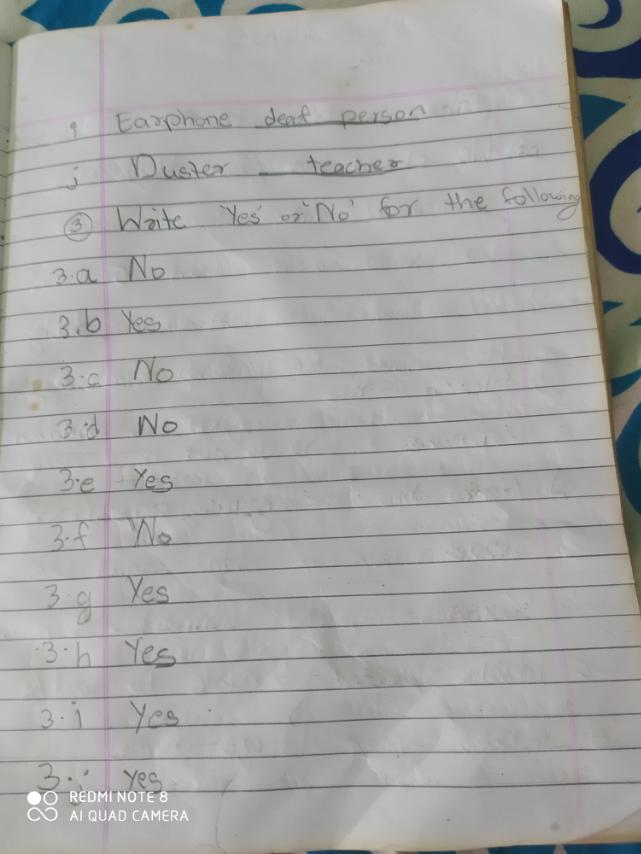 i Earphone deaf person
j Duster teacher
3 Write 'Yes' or 'No' for the following
3.a No
3.b Yes
3.c No
3.d No
3.e Yes
3.f No
3.g Yes
3.h Yes
3.i Yes
3.j Yes
REDMI NOTE 8
AI QUAD CAMERA